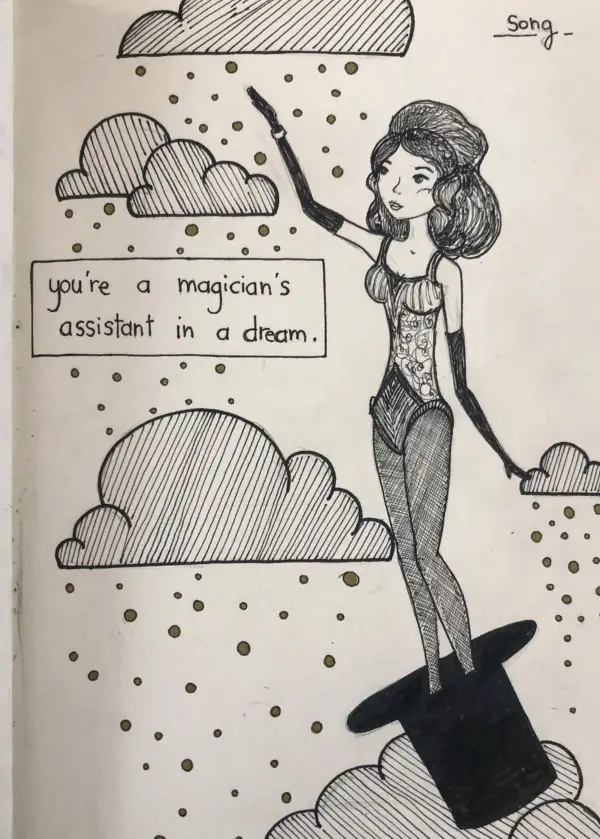 Song -
you're a magician's
assistant in a dream.